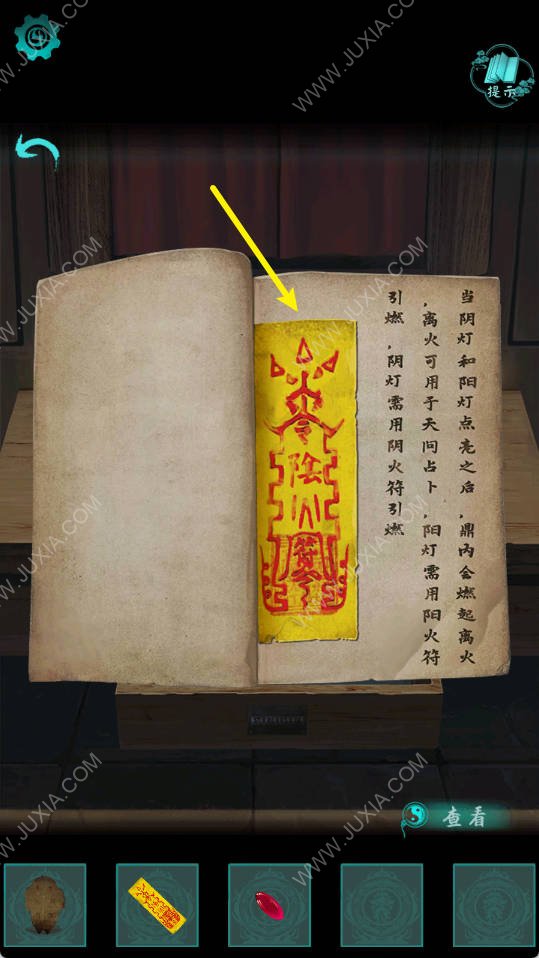 提示
当阴灯和阳灯点亮之后，鼎内会燃起离火
，离火可用于天问占卜，阳灯需用阳火符
引燃，阴灯需用阴火符引燃
陰
火
符
查看
WWW.JUXIA.COM